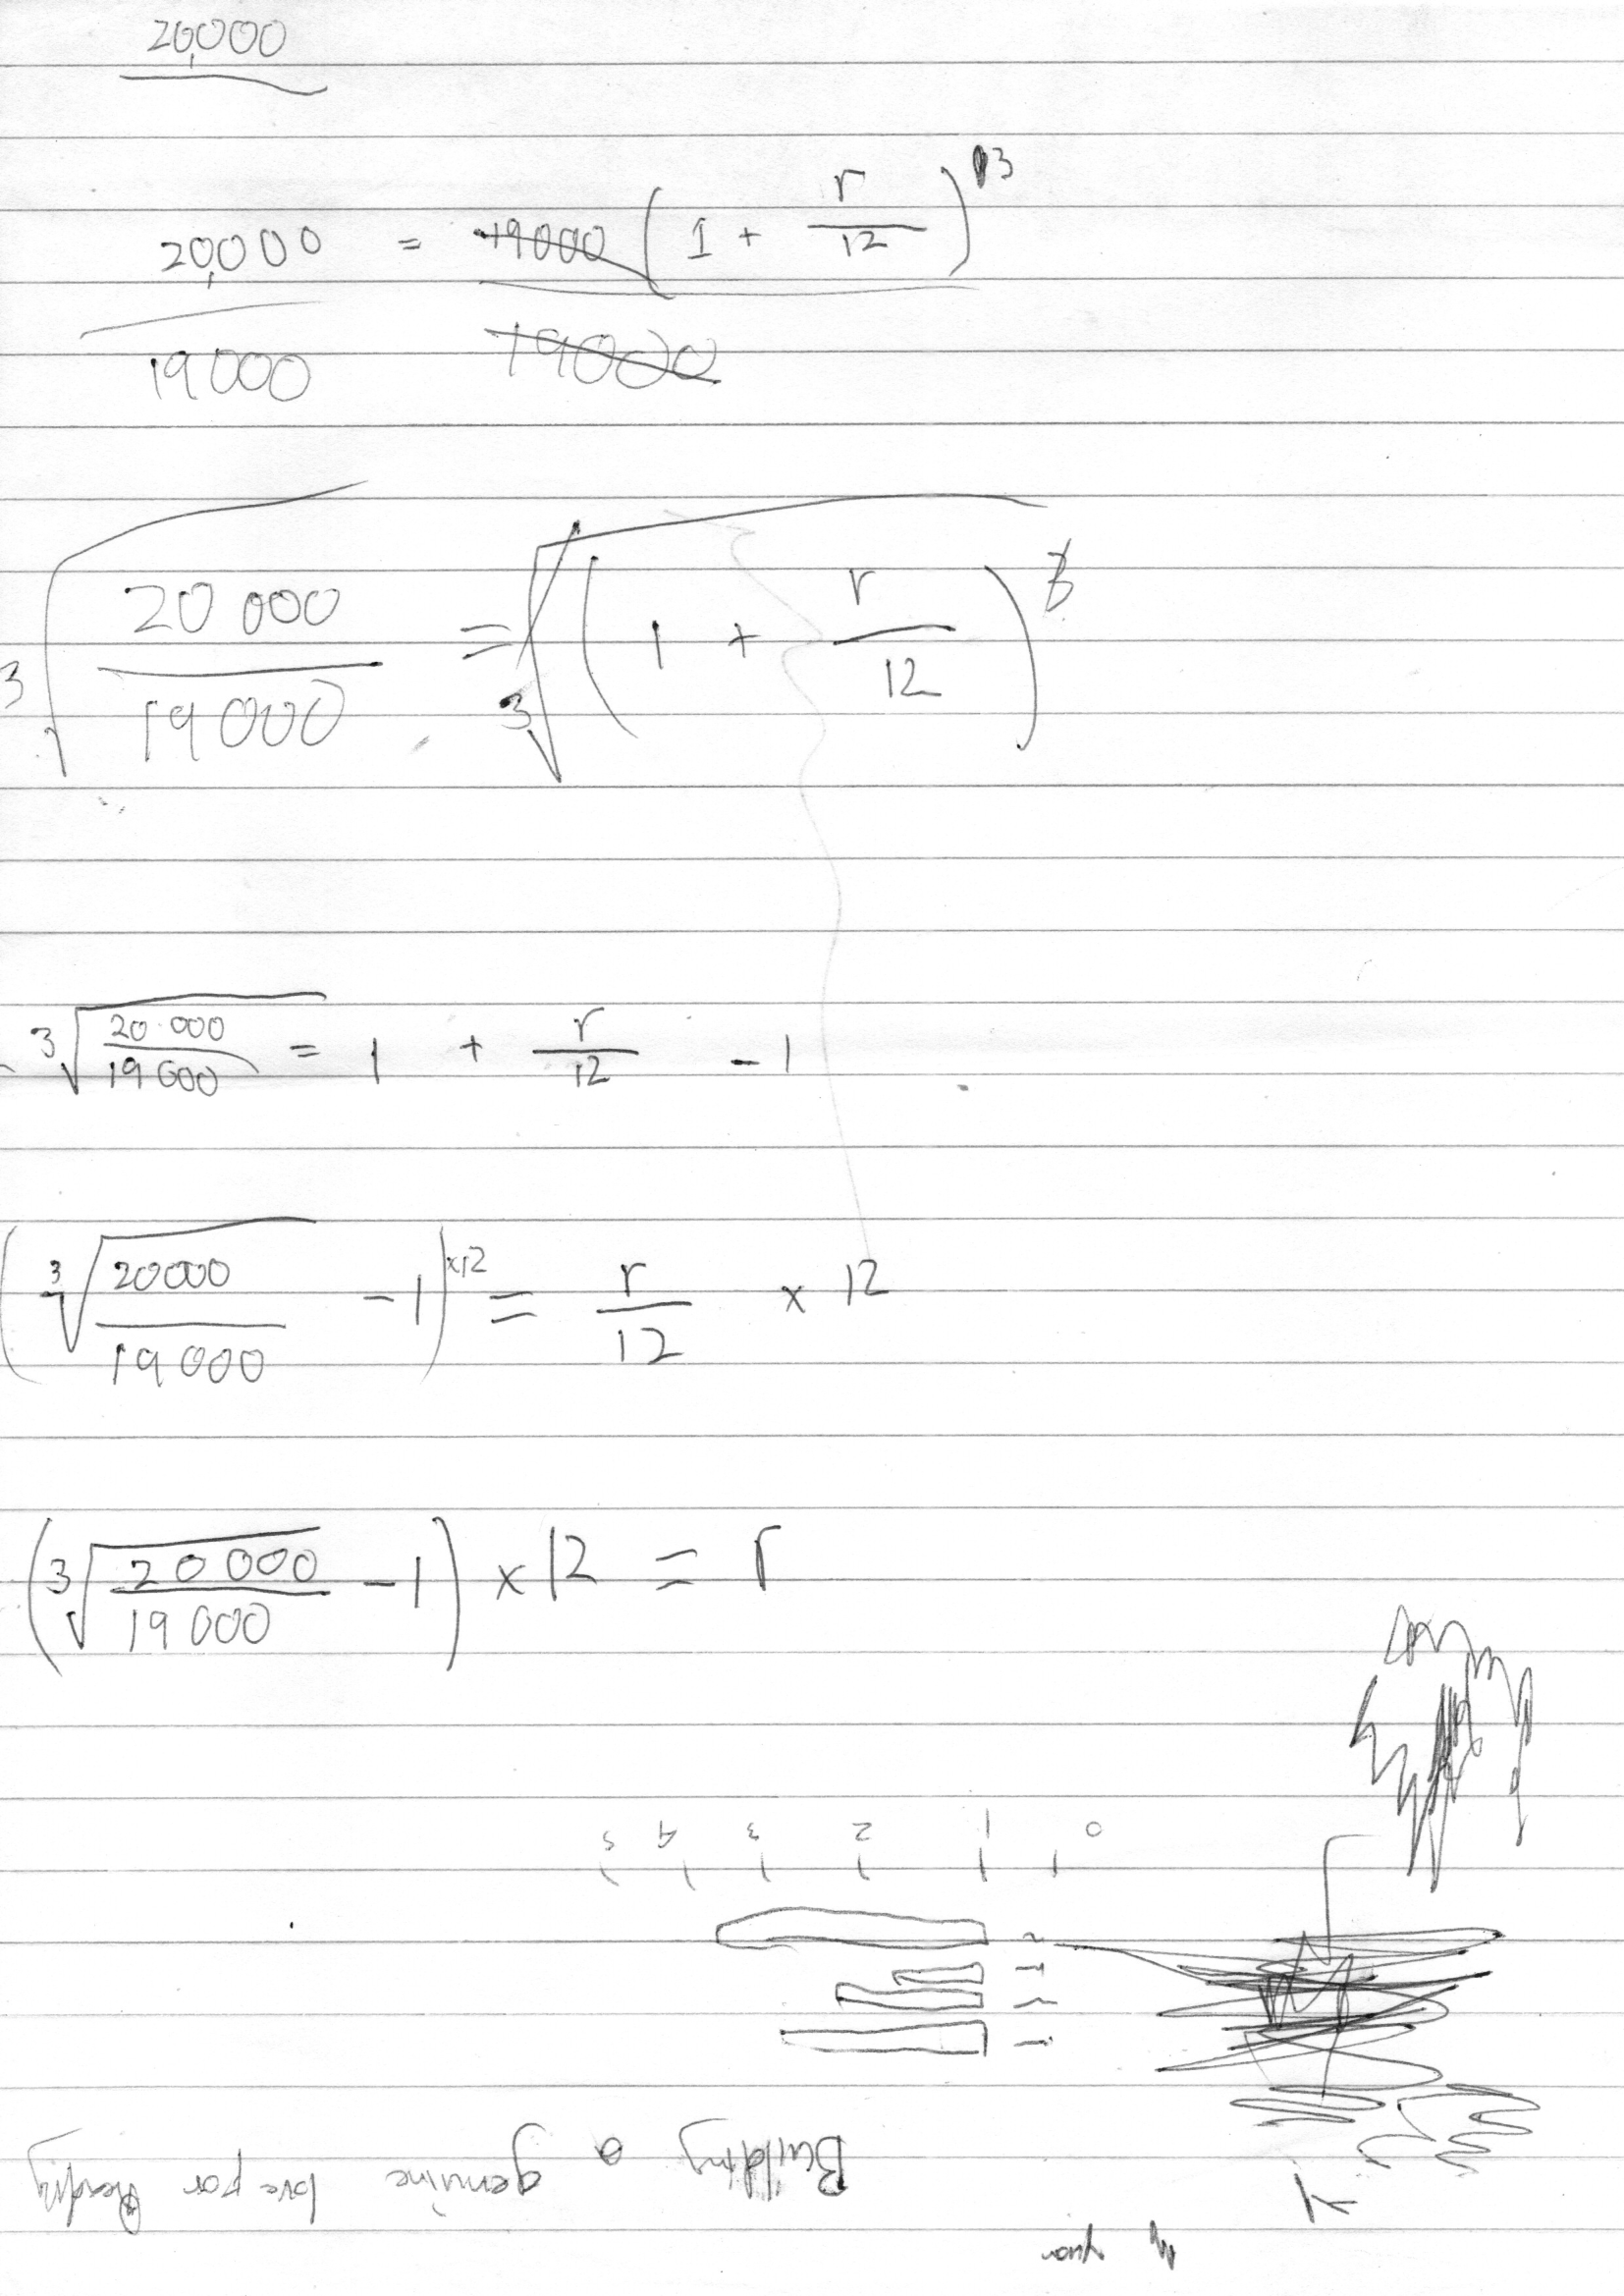 20,000
20,000 = 19000 ( 1 + r/12 )^3
19000 19000
3√(20 000 / 19 000) = 3√(( 1 + r/12 )^3)
3√(20 000 / 19 000) = 1 + r/12 - 1
( 3√(20000 / 19 000) - 1 ) x12 = r/12 x 12
( 3√(20 000 / 19 000) - 1 ) x 12 = r
0 1 2 3 4 5
Building a genuine love for Reading